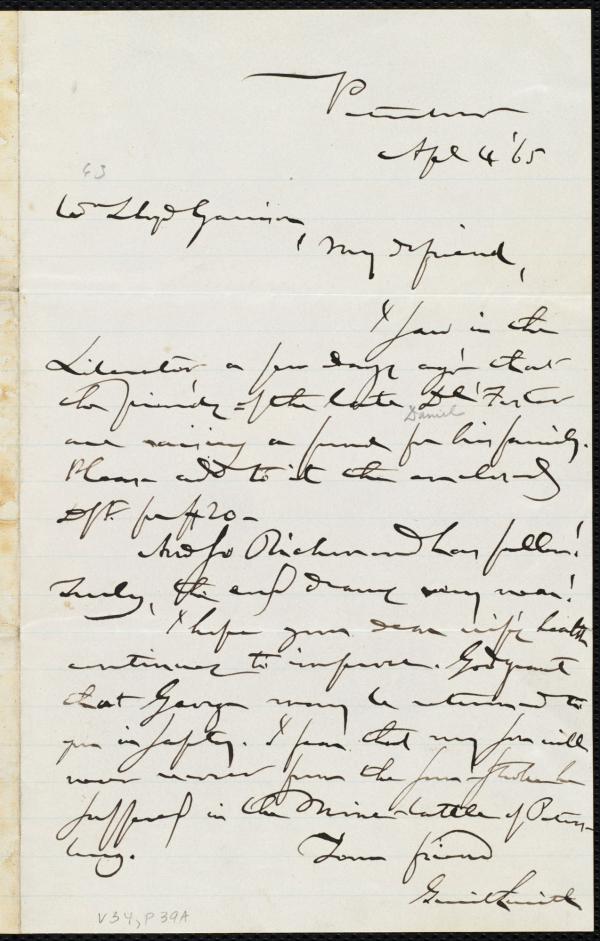 Peterboro
Apl 4 '65
63
Wm Lloyd Garrison,
My d friend,
I saw in the
Liberator a few days ago that
the friends of the late Dl Foster
Daniel
are raising a fund for his family.
Please add to it the enclosed
Dft for $20 -
And so Richmond has fallen!
Truly, the end draws very near!
I hope your dear wife's health
continues to improve. God grant
that George may be returned to
you in safety. I fear that my son will
never recover from the sun-stroke he
suffered in the Mine-battle of Peters-
burg.
Your friend
Gerrit Smith
V34, P39A